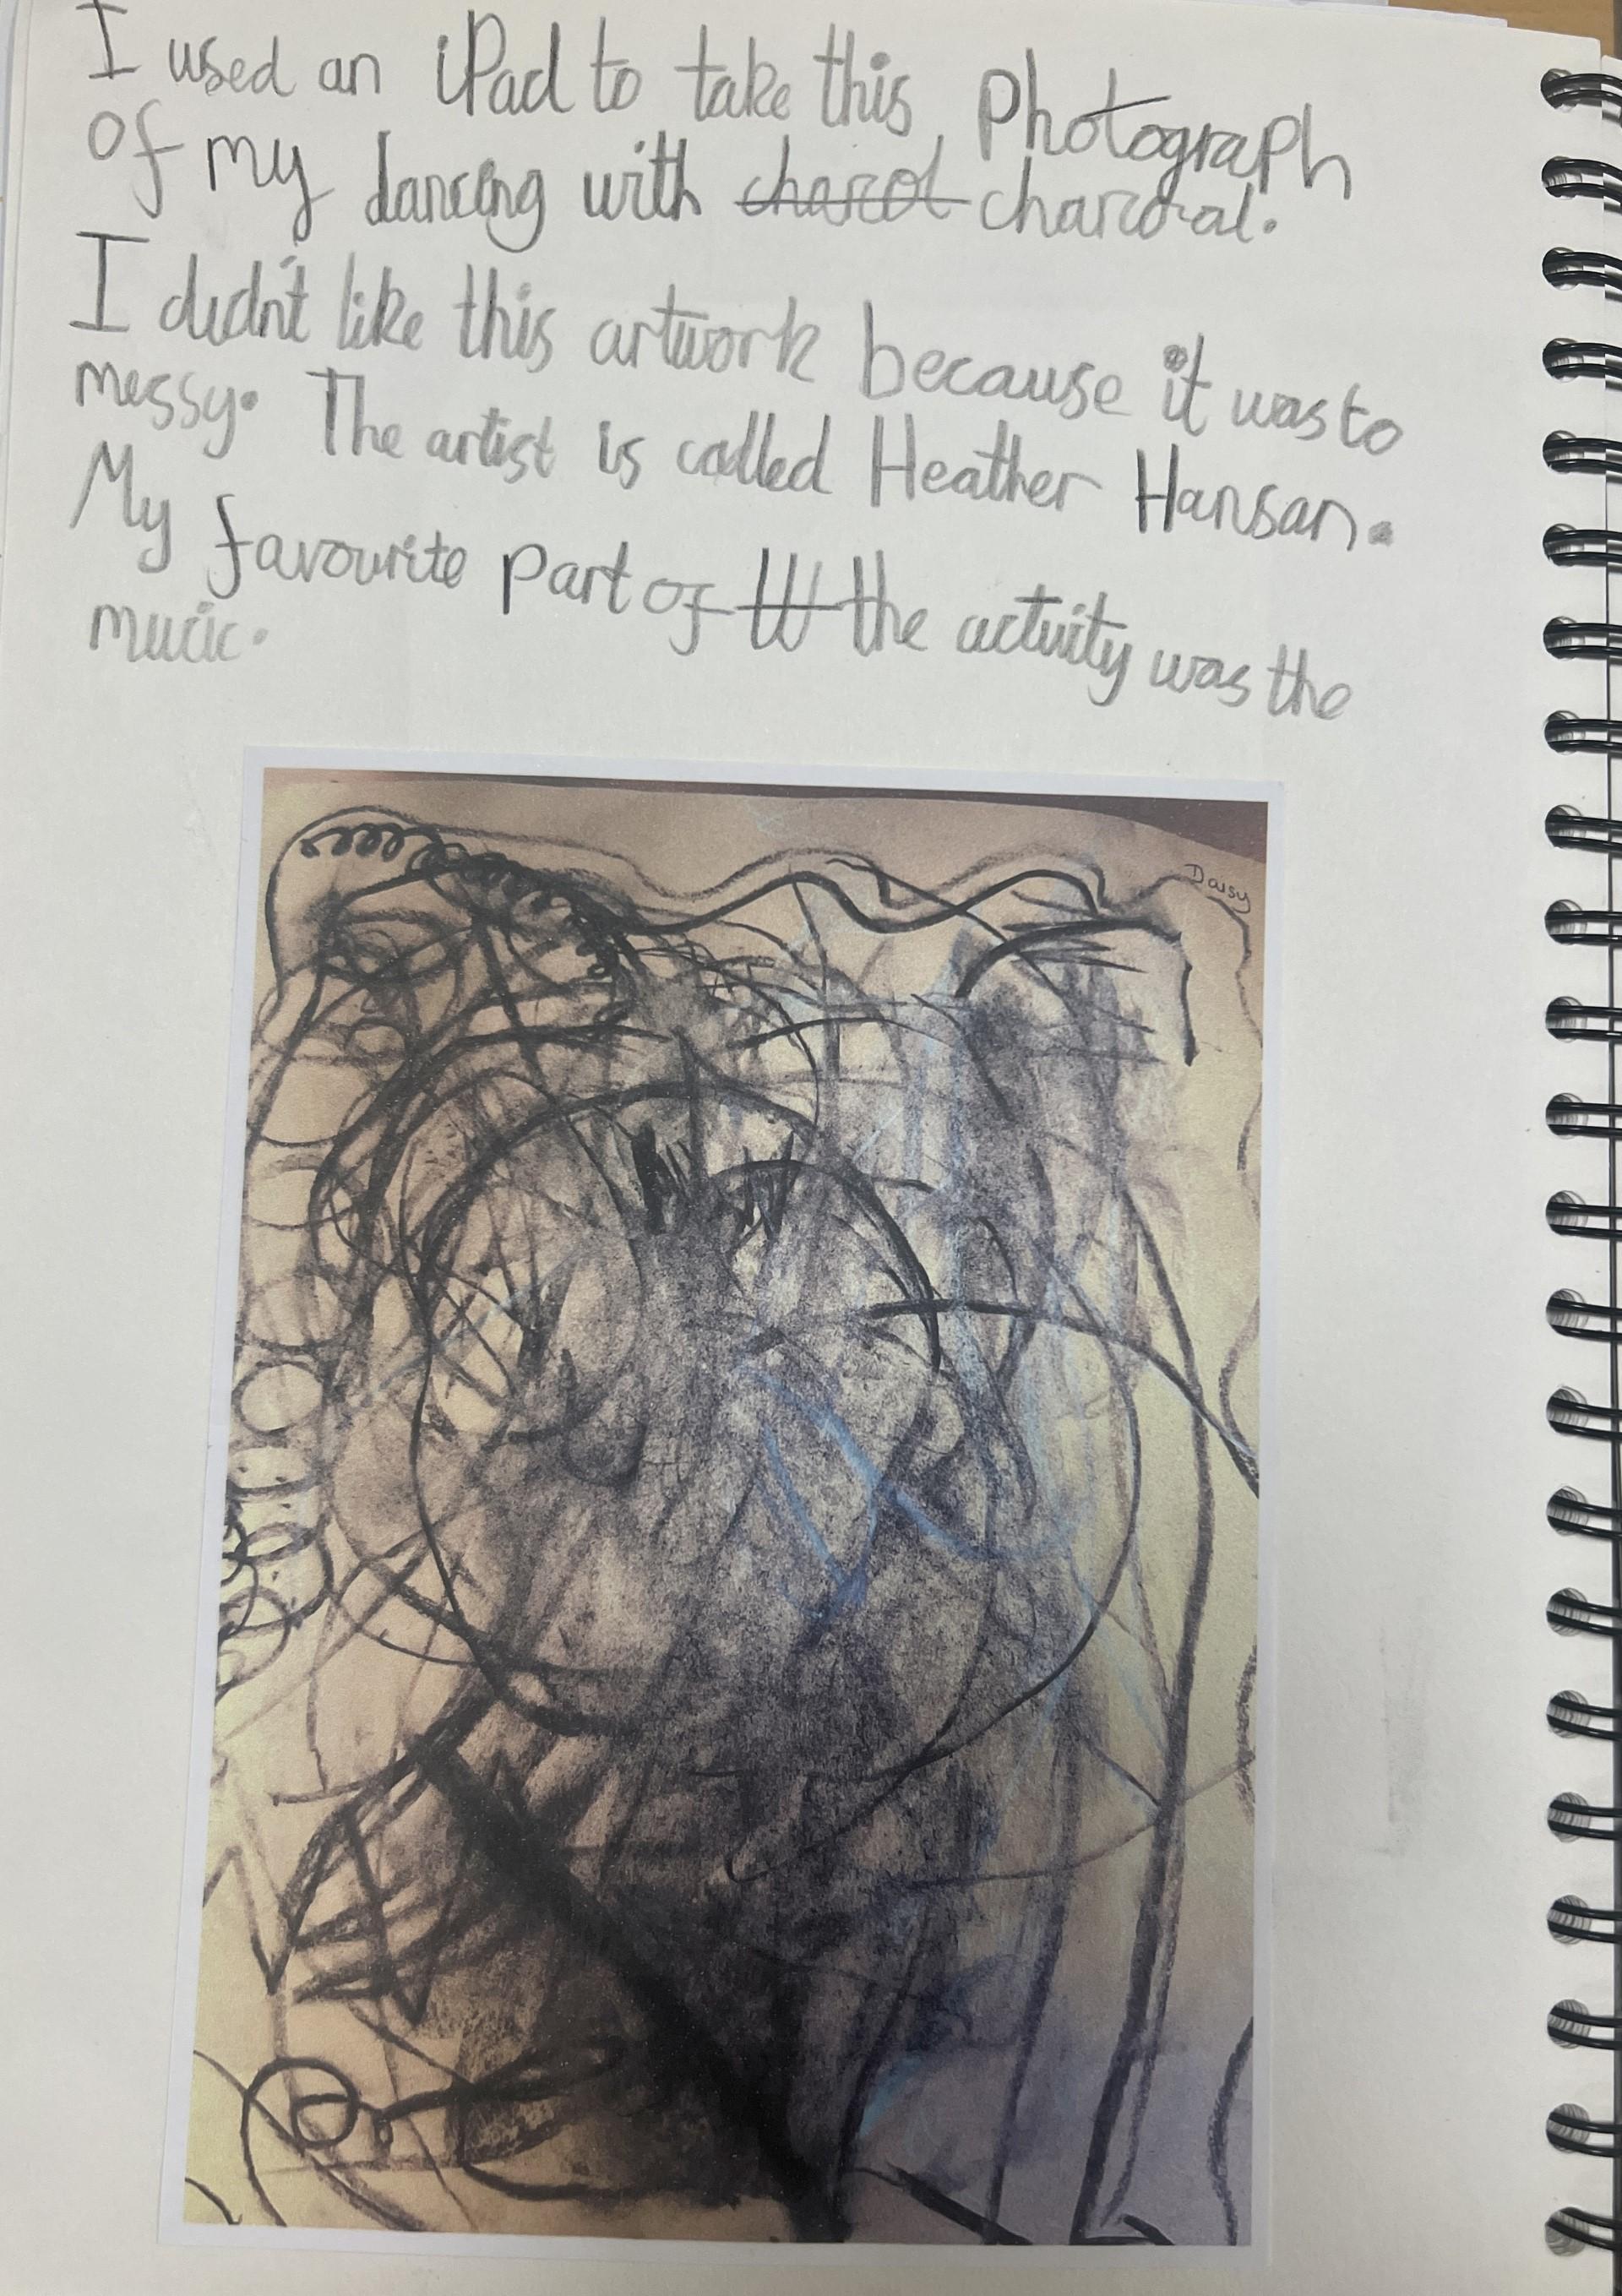 I used an iPad to take this photograph
of my dancing with charcol charcoal.
I didn't like this artwork because it was to
messy. The artist is called Heather Hansan.
My favourite part of ttt the activity was the
music.
Daisy